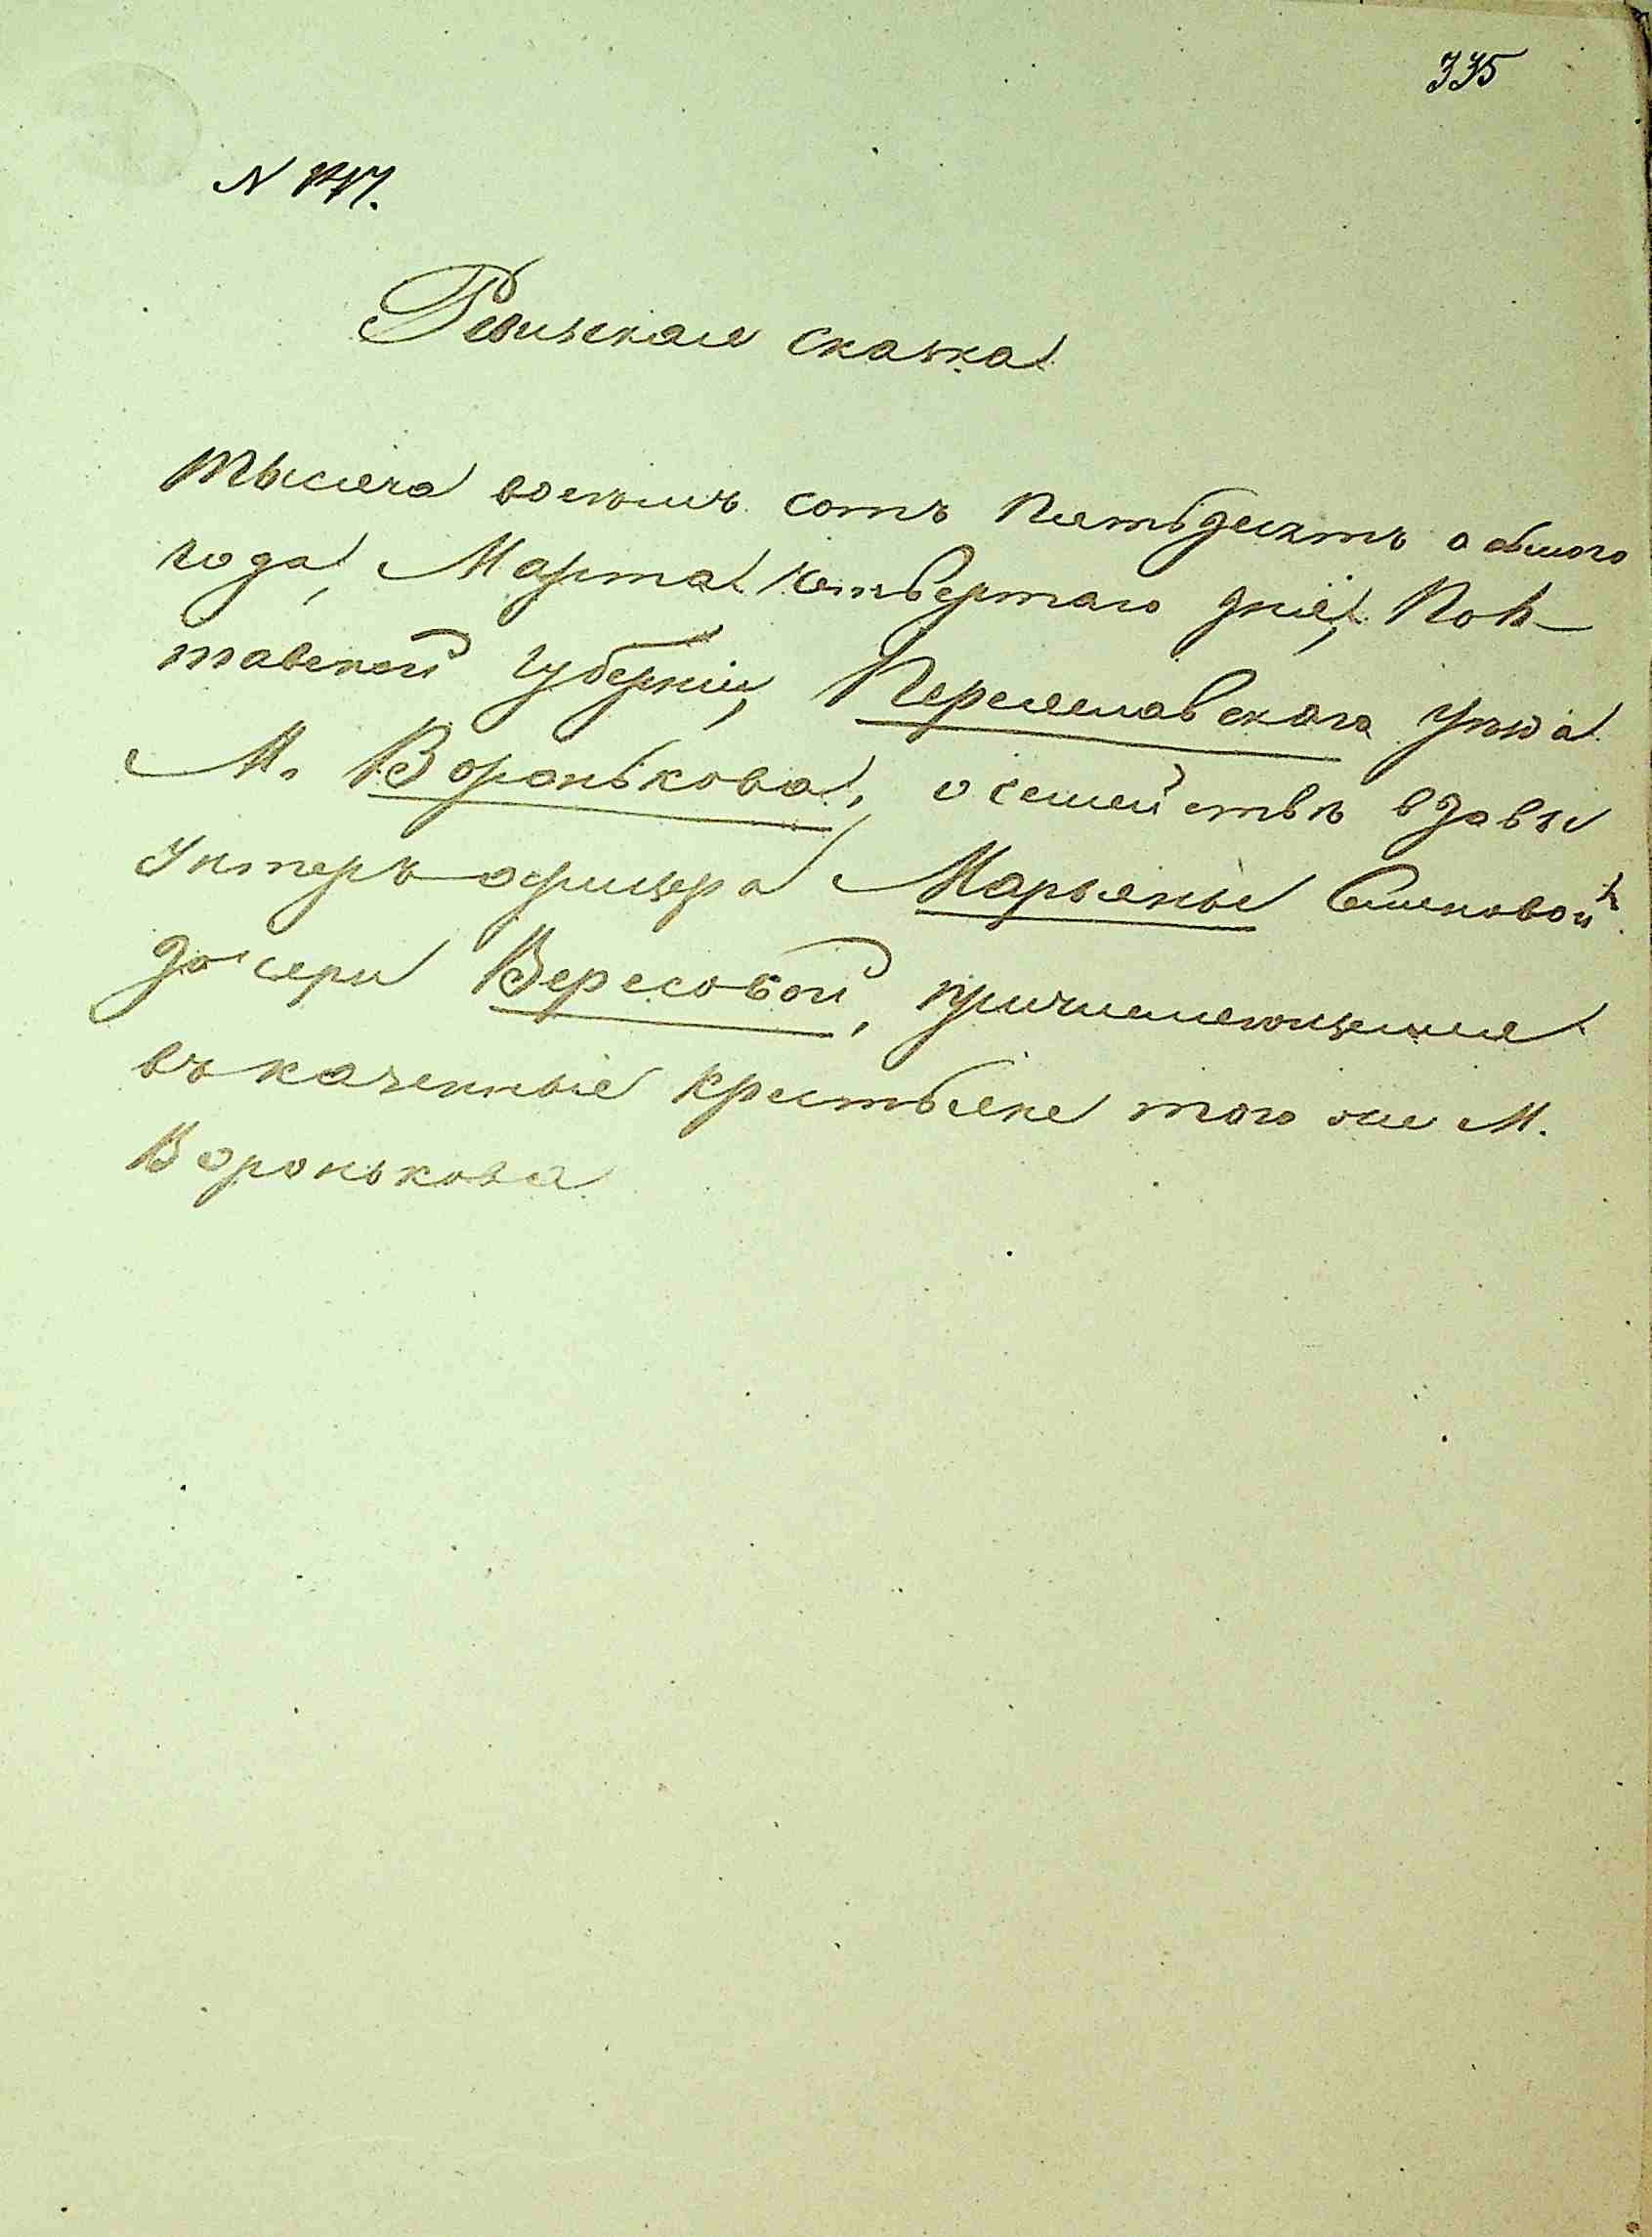 335
N 147.
Ревизская сказка
Тысяча восемь сотъ пятьдесятъ осьмого
года, Марта четвертаго дня, Пол-
тавской губерніи, Переяславскаго уѣзда
М. Воронькова, о семействѣ вдовы
унтеръ-офицера Марьяны Семеновой
дочери Вересовой, причисляющемся
въ казенные крестьяне того же М.
Воронькова